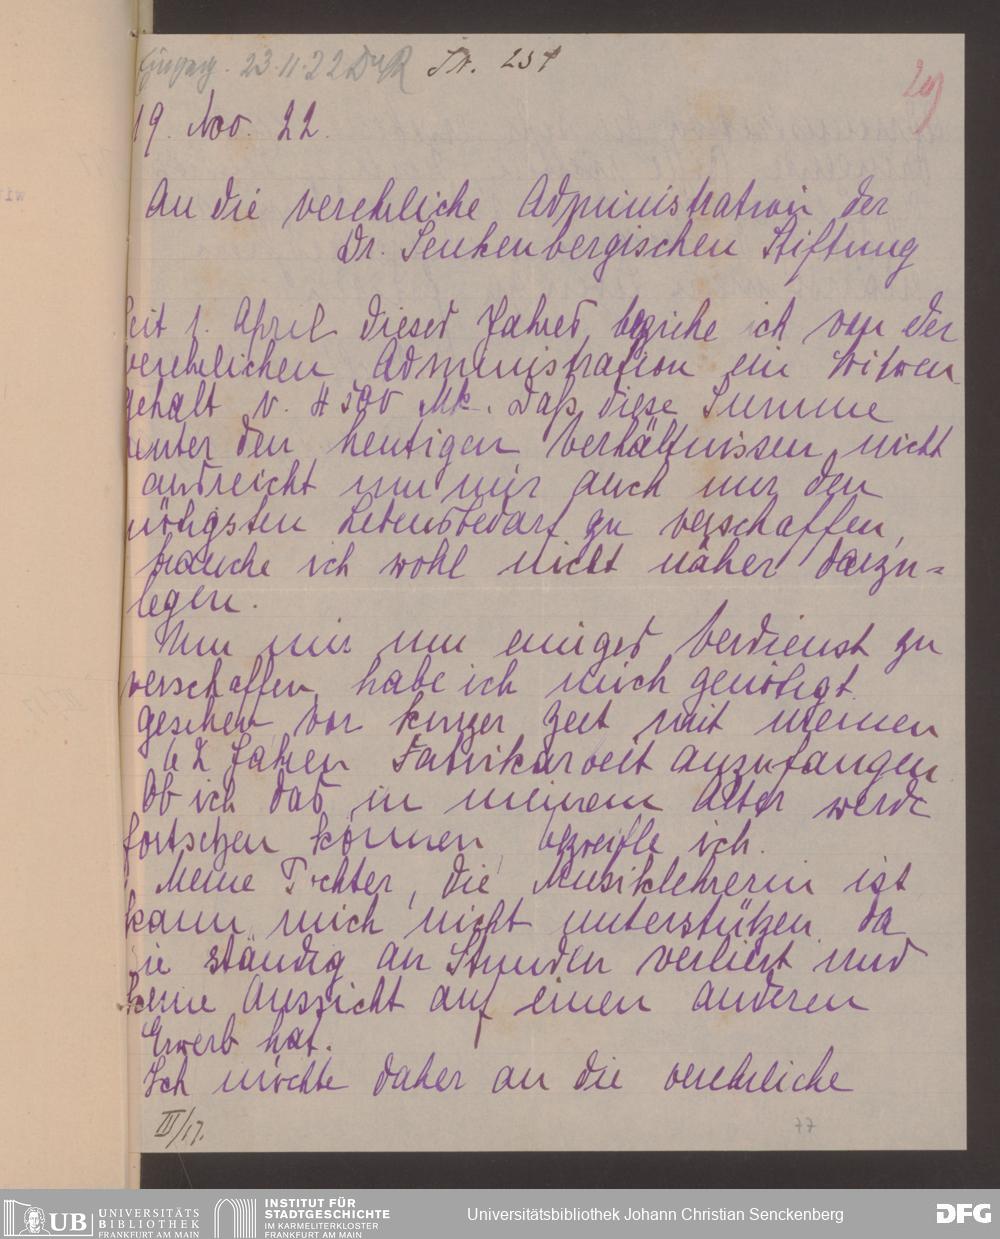 Eingang. 23.11.22 Nr. 237
19. Nov. 22.
An die verehrliche Administration der
Dr. Senkenbergischen Stiftung
Seit 1. April dieses Jahres beziehe ich von der
verehrlichen Administration ein Witwen
gehalt v. 4500 Mk. Daß diese Summe
unter den heutigen Verhältnissen nicht
ausreicht um mir auch nur den
nötigsten Lebensbedarf zu verschaffen,
brauche ich wohl nicht näher darzu-
legen.
Um mir nun einiges Verdienst zu
verschaffen, habe ich mich genötigt
gesehen vor kurzer Zeit mit meinen
62 Jahren Fabrikarbeit anzufangen
Ob ich das in meinem Alter werde
fortsetzen können, bezweifle ich.
Meine Tochter, die Musiklehrerin ist
kann mich nicht unterstützen da
sie ständig an Stunden verliert und
keine Aussicht auf einen anderen
Erwerb hat.
Ich möchte daher an die verehrliche
III/17.
77
UB UNIVERSITÄTS
BIBLIOTHEK
FRANKFURT AM MAIN
INSTITUT FÜR
STADTGESCHICHTE
IM KARMELITERKLOSTER
FRANKFURT AM MAIN
Universitätsbibliothek Johann Christian Senckenberg
DFG